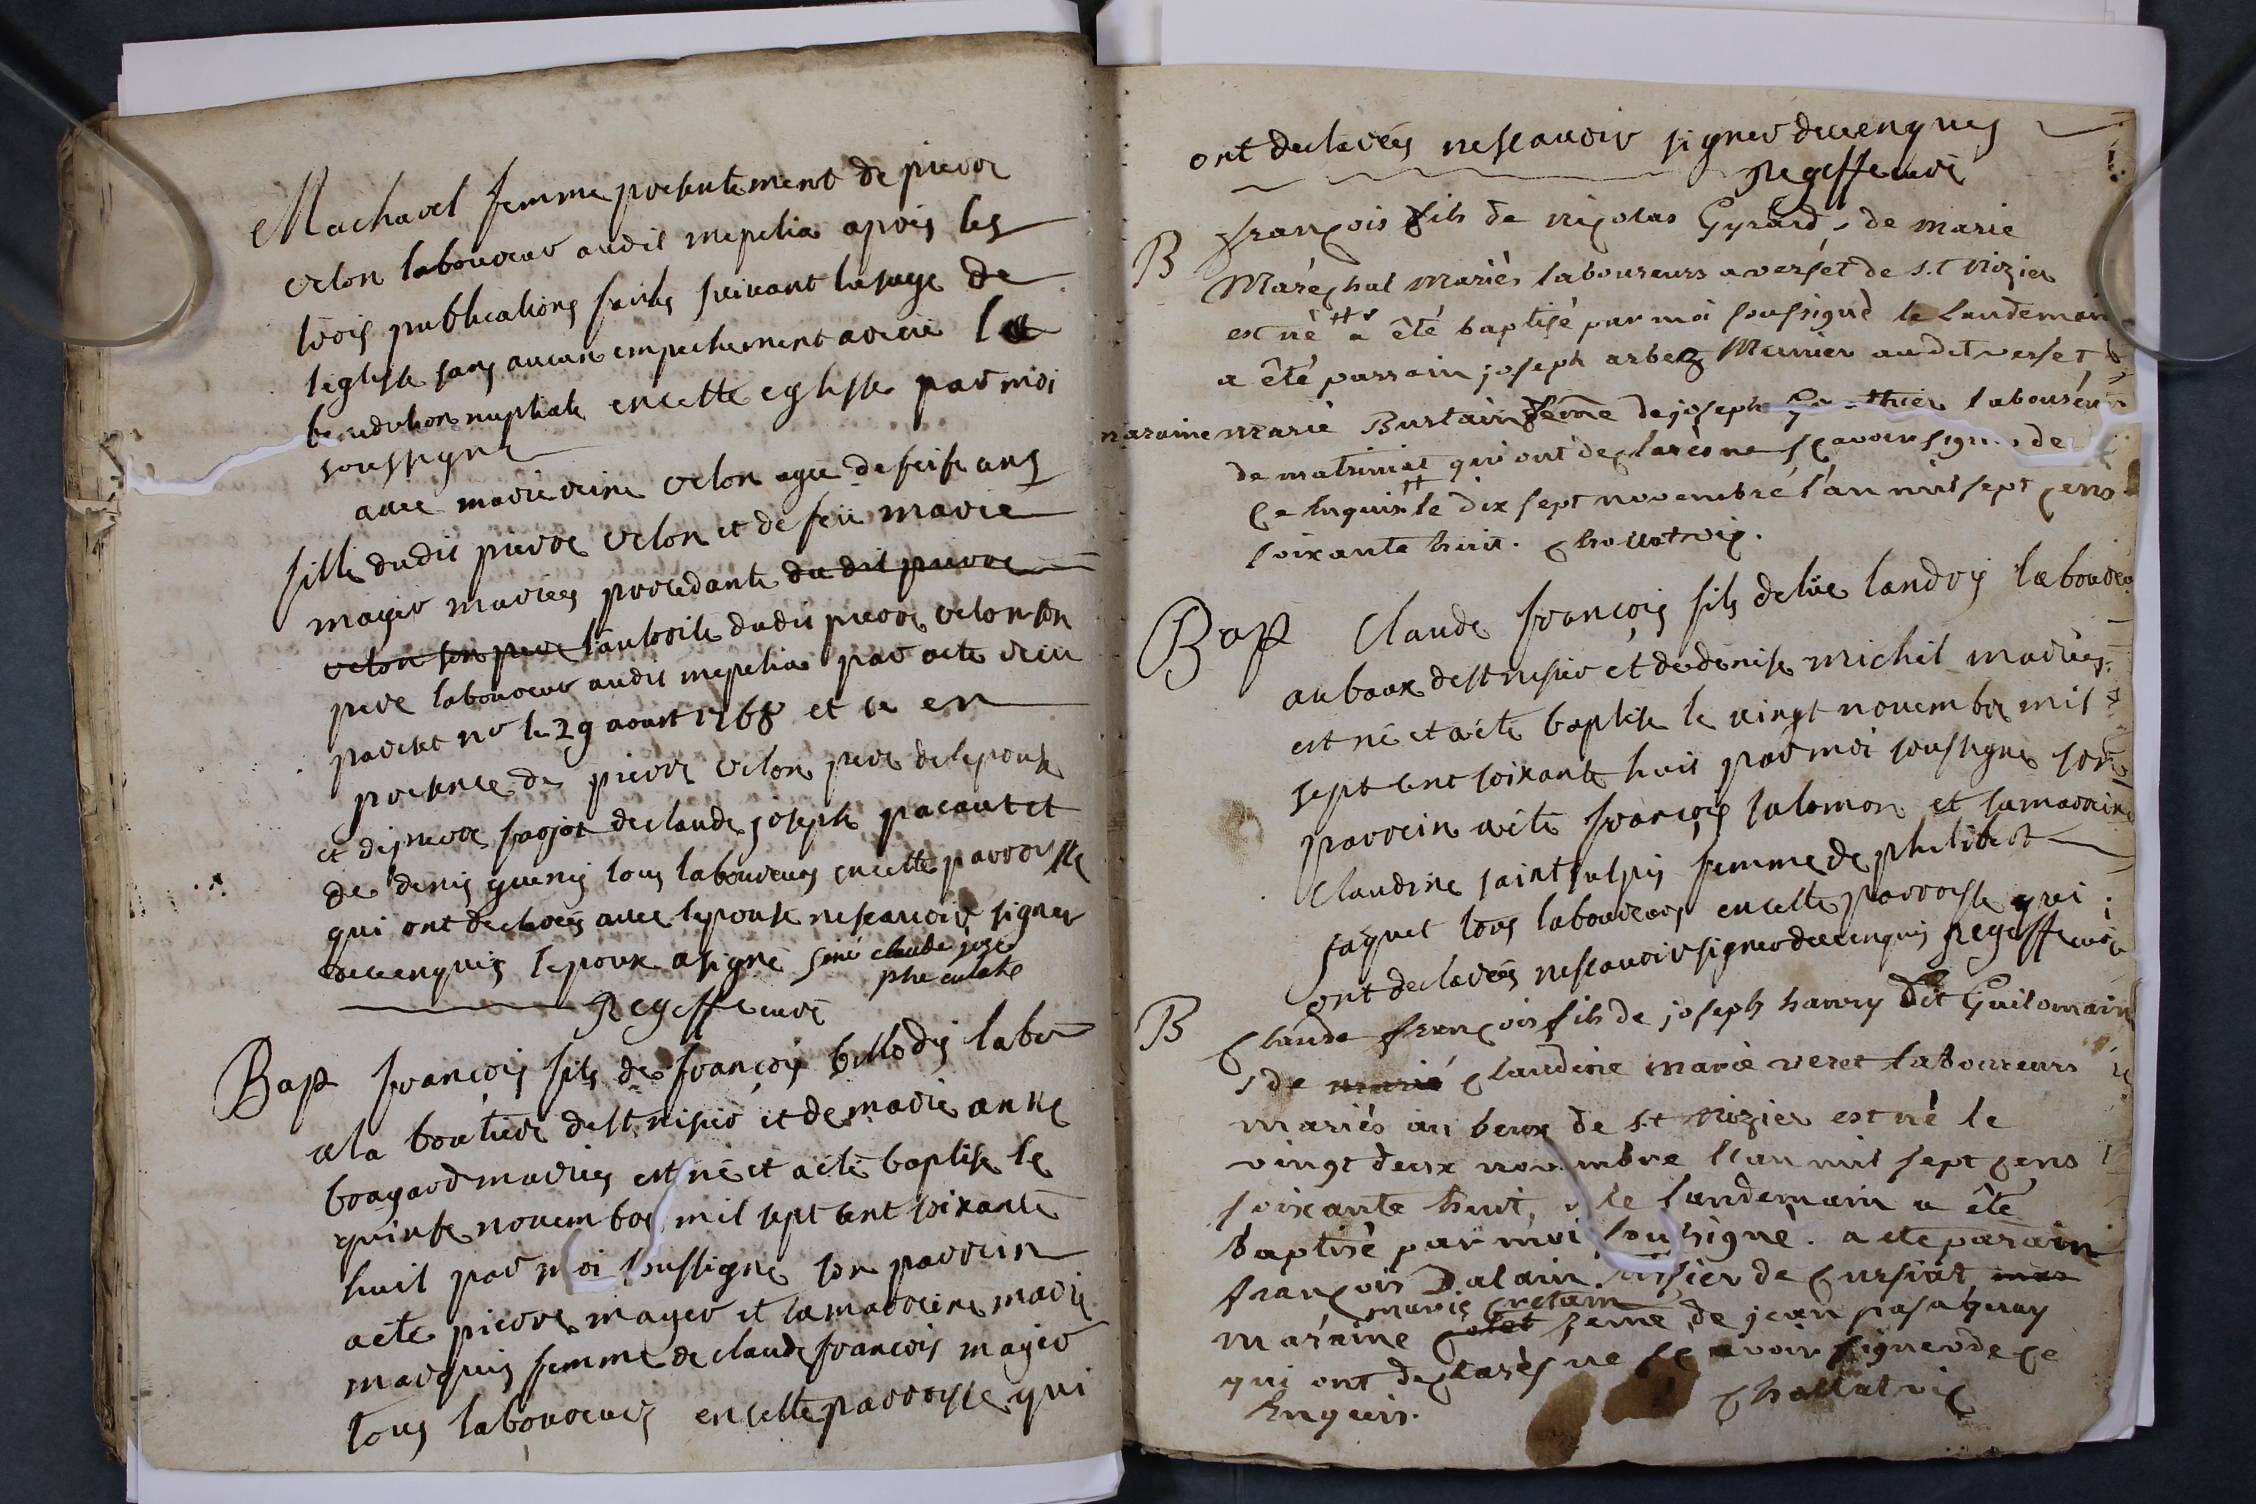 Macharel femme presentement de pierre
velon laboureur audit mepelia apres les
trois publications faites suivant lusage de
leglisse sans aucun empechement a receu la
benediction nuptiale en cette eglisse par moi
soussigne
avec marie reine velon agee de seise ans
fille dudit pierre velon et de feüe marie
mayer mariees procedante du dit pierre
velon son pere lautorite dudit pierre velon son
pere laboureur audit mepelia par acte receu
parchet nre le 29 aoust 1768 et ce en
presence de pierre velon pere de lepouse
et de pierre farjot de claude joseph pacaut et
de denis guenis tous laboureurs en cette parroisse
qui ont declarés avec lepouse ne scavoir signer
de ce enquis lepoux a signé siné claude jose
phe culate
Regeffe curé
Bap françois fils de françois billodis labr
a la boutiere de st nisier et de marie anne
bragard mariés est né et a eté baptise le
quinse novembre mil sept cent soixante
huit par moi soussigne son parrein
a ete pierre mayer et la marreine marie
marquis femme de claude françois mayer
tous laboureurs en cette parroisse qui
ont declarés ne scavoir signer de ce enquis
Regeffe curé
B françois fils de nicolas Gyrard, de marie
Maréchal mariés laboureurs a verset de s.t Nizier
est né a été baptisé par moi soussigné le landemain
a été parrain joseph arbez Meunier audit verset
maraine marie Burtain feme de joseph Gauthier laboureur
de matrimat qui ont declarés ne scavoir signer de
ce enquis le dix sept novembre l'an mil sept cens
soixante huit. chollat vic.
Bap Claude françois fils de lüe landry laboureur
au baux de st nisier et de denise michel mariés
est né et a eté baptise le vingt novembre mil
sept cent soixante huit par moi soussigne son
parrein a ete françois salomon et la marreine
Claudine saint sulpis femme de philibert
jaquet tous laboureurs en cette parroisse qui
ont declarés ne scavoir signer de ce enquis Regeffe curé
B Claude françois fils de joseph hanry dit Guilomain
, de marie claudine marie veret laboureurs
mariés au beux de s.t Nizier est né le
vingt deux novembre l'an mil sept cens
soixante huit, le landemain a été
baptisé par moi soussigné. a ete parain
françois Dalain de cursiat mar
marie cretain
maraine colet feme de jean
qui ont declarés ne scavoir signer de ce
Enquis. chollat vic